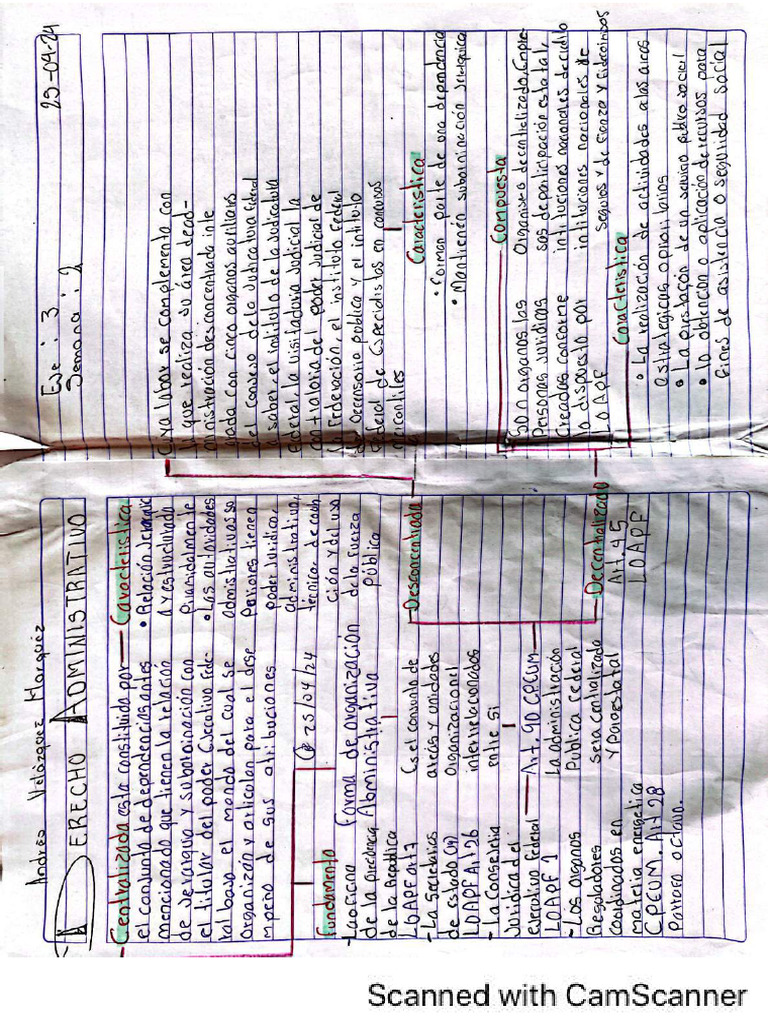 Andrés Velázquez Marquéz
DERECHO ADMINISTRATIVO
Centralizada esta constituido por
el conjunto de dependencias antes
mencionado que tienen la relación
de Jerarquia y subordinación con
el titular del poder Ejecutivo Fede-
ral bajo el mando del cual se
organizán y articulan para el dese
mpeño de sus atribuciones
Caracteristica
• Relación Jerarquic
A y estructurada
• Las autoridades
administrativas su
periores tienen
poder Juridico,
administrativo,
técnico, de
ción y del uso
de la fuerza
pública
25/04/24
Fundamento
- La oficina
de la Presidencia
de la Republica
LOAPF art 7
- La secretarias
de estado
LOAPF Art 26
- La Consejeria
Juridica del
ejecutivo Federal
LOAPF 1
- Los organos
Reguladores
coordinados en
materia energetica
CPEUM. Art 28
Parrafo octavo.
Forma de organización
Administrativa
Es el conjunto de
areás y unidades
Organizacionel
interrelacionados
entre si
Art. 90 CPEUM
La administración
Publica Federal
sera centralizada
y Paraestatal
Desconcentrada
Decentralizado
Art. 45
LOAPF
Eje : 3
Semana : 2
25-04-24
Cuya labor se complementa con
la que realiza su área de ad-
ministración desconcentrada inte
grada con cinco organos auxiliares
del consejo de la Judicatura federal
a saber, el instituto de la Judicatura
Federal, la visitaduria Judicial, la
contraloria del poder Judicial de
la Federación, el instituto Federal
de Defensoria pública y el instituto
Federal de Especialistas en concursos
mercantiles
Caracteristica
• Forman parte de una dependencia
• Mantienén subordinación Jerarquica
Son organos las
Personas Juridicas
Creadas conforme
lo dispuesto por
LOAPF
Compuesta
Organismo decentralizado, Empre-
sas de participación estatal,
intituciones nacionales de credito
intituciones nacionales de
seguros y de fianza y Fideicomisos
Caracteristica
• La realización de actividades a las areas
estrategicas o prioritarias
• La prestación de un servicio público o social
• la obtención o aplicación de recursos para
fines de asistencia o seguridad social
Scanned with CamScanner